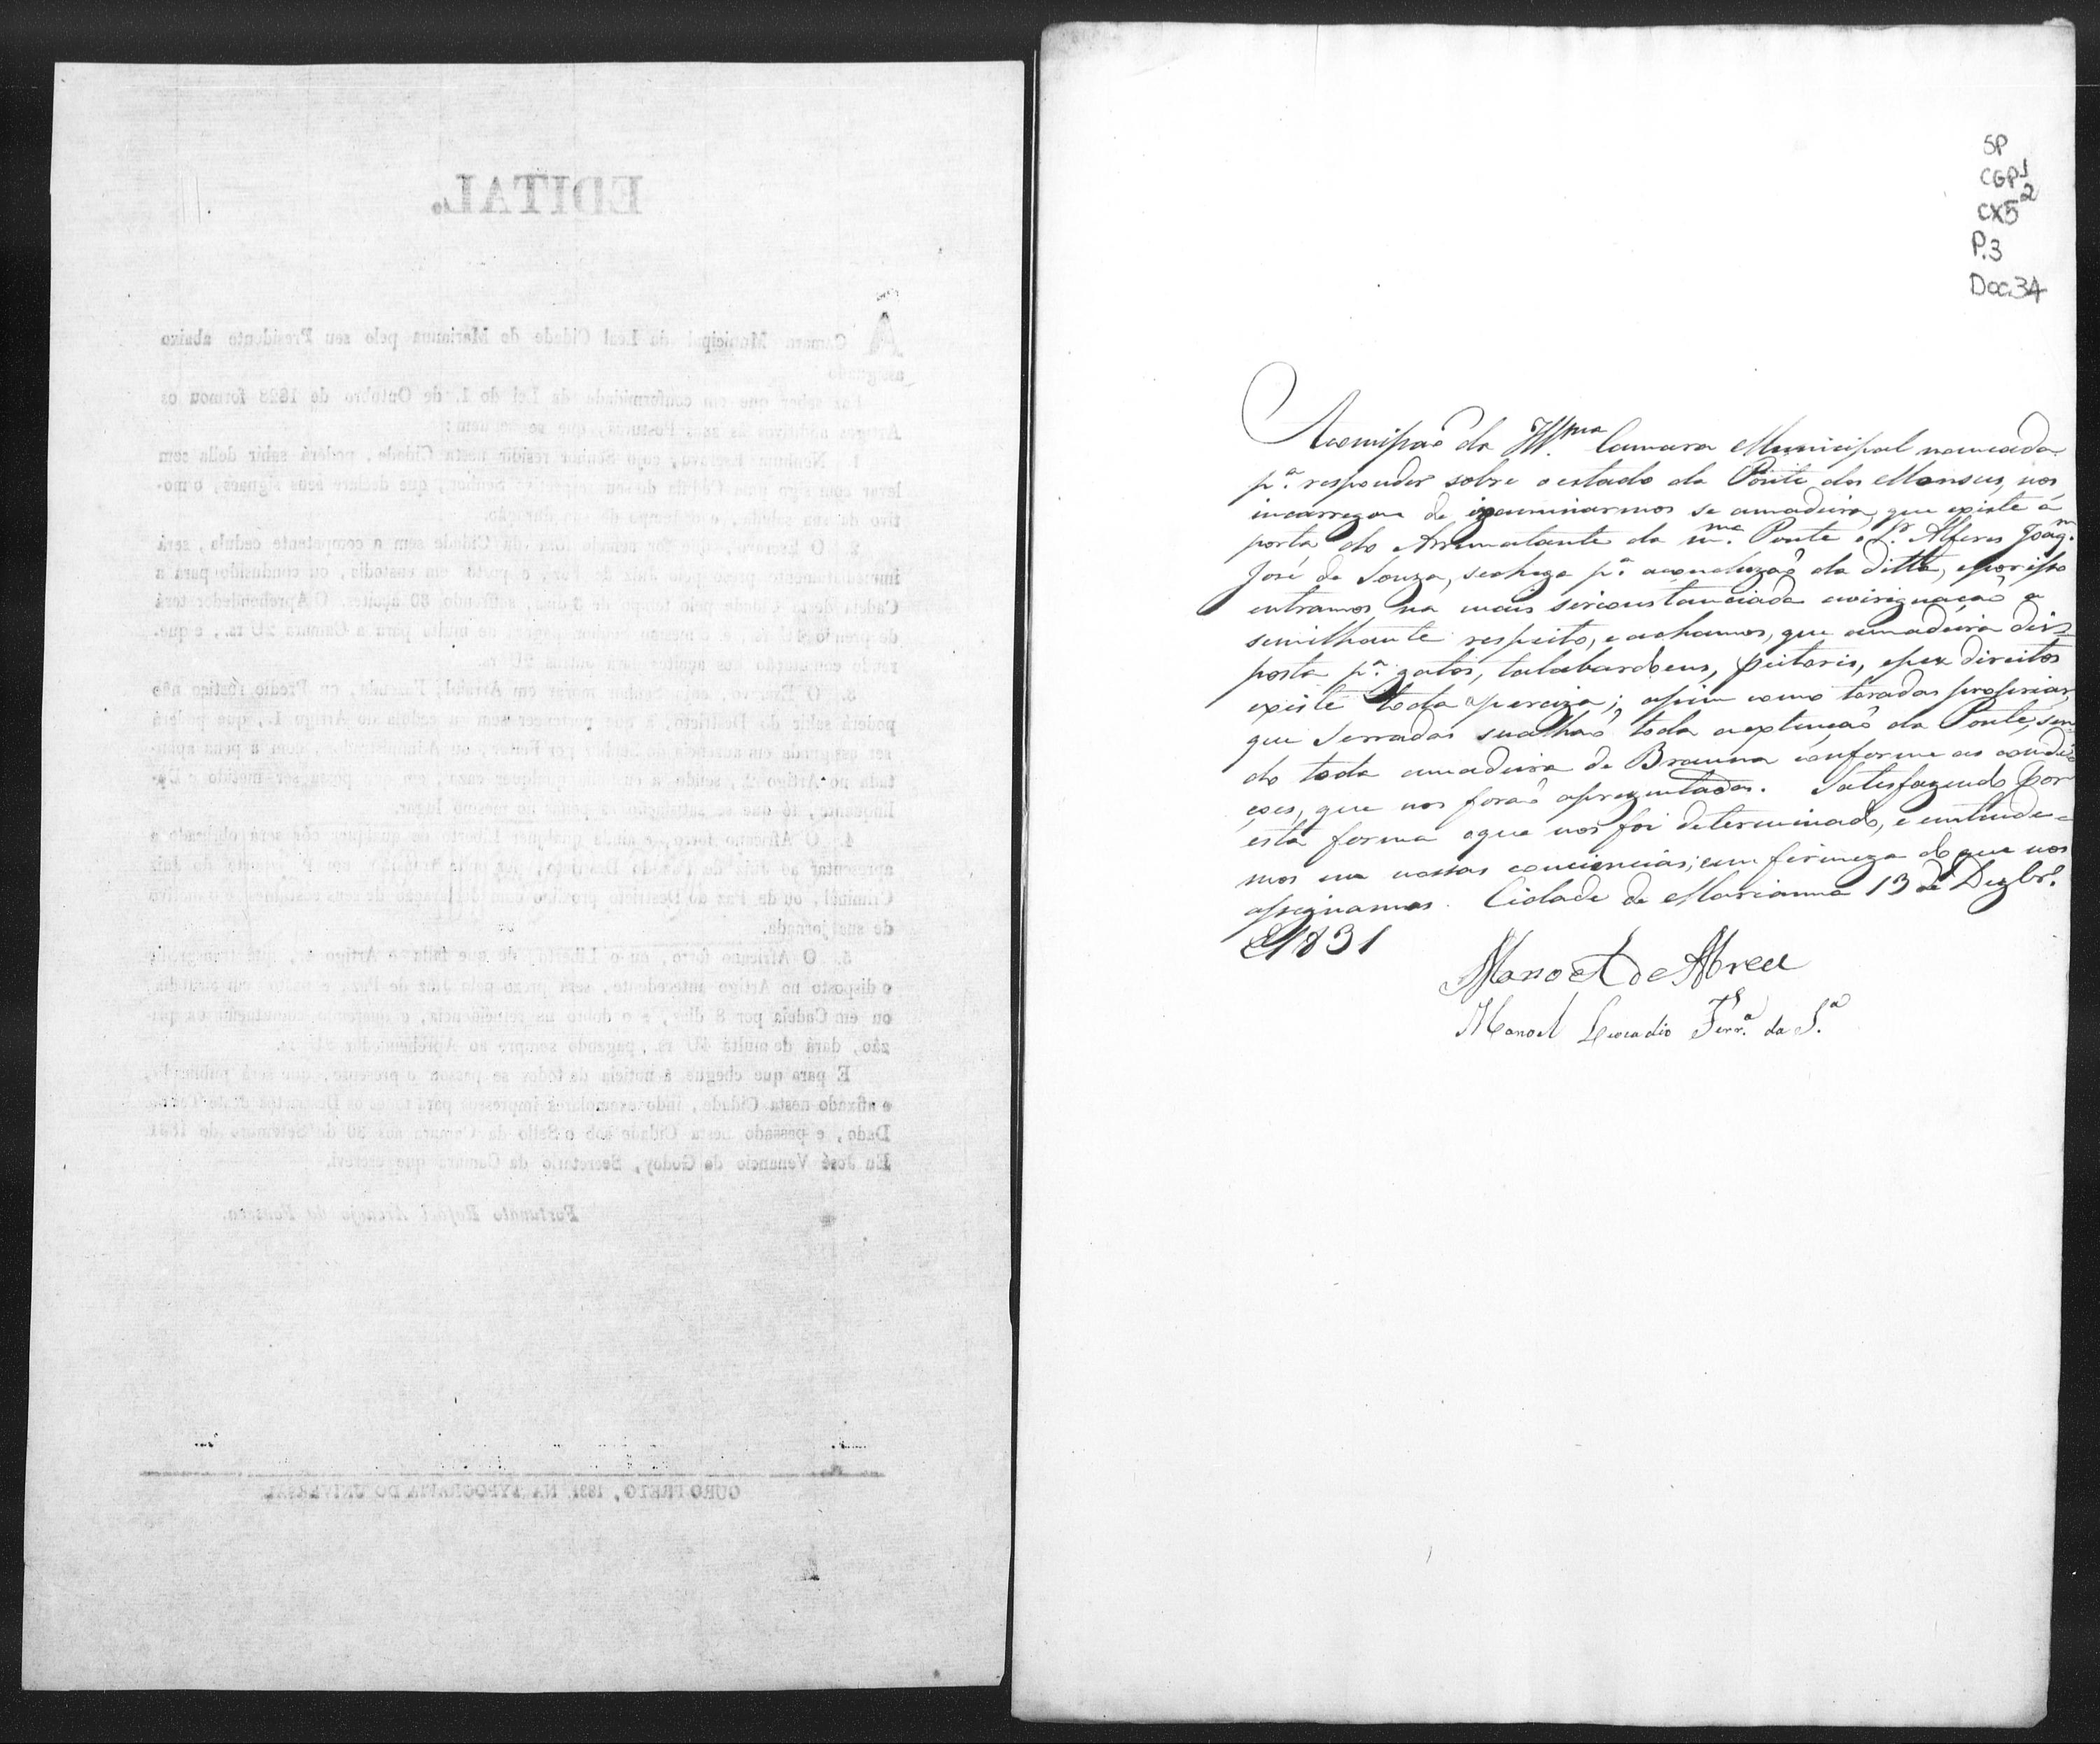 EDITAL.
A Camara Municipal da Leal Cidade de Marianna pelo seu Presidente abaixo
assignado
Faz saber que em conformidade da Lei do 1. de Outubro de 1828 formou os
Artigos additivos ás suas Posturas, que se seguem:
1. Nenhum Escravo, cujo Senhor residir nesta Cidade, poderá sahir della sem
levar comsigo uma Cedula de seu Senhor, que declare seus signaes, o mo-
tivo da sua sahida, e o tempo da sua duração.
2. O Escravo, que for achado fóra da Cidade sem a competente cedula, será
immediatamente prezo pelo Juiz de Paz, e posto em custodia, ou conduzido para a
Cadeia desta Cidade pelo tempo de 3 dias, soffrendo 30 açoites. O Aprehendedor terá
de premio, e o mesmo Senhor pagará de multa para a Camara 2U rs., e que-
rendo comutação dos açoites dará outros 2U rs.
3. O Escravo, cujo Senhor morar em Arraial, Fazenda, ou Predio rustico não
poderá sahir do Destricto, a que pertencer sem a cedula do Artigo 1., que poderá
ser assignada em auzencia do Senhor por Feitor, ou Administrador, com a pena apon-
tada no Artigo 2., sendo a custodia qualquer caza, em que possa ser mettido o De-
linquente, té que se satisfação os açoites no mesmo lugar.
4. O Africano forro, e ainda qualquer Liberto de qualquer côr será obrigado a
apresentar ao Juiz de Paz do Destricto, por onde transitar um Passaporte do Juiz
Criminal, ou de Paz do Destricto proximo com declaração de seus costumes, e o motivo
de sua jornada.
5. O Africano forro, ou o Liberto, de que falla o Artigo 4., que transgredir
o disposto no Artigo antecedente, será prezo pelo Juiz de Paz, e posto em custodia,
ou em Cadeia por 8 dias, e o dobro na reincidencia, e querendo comutação da pri-
zão, dará de multa 4U rs., pagando sempre ao Aprehendedor 2U rs.
E para que chegue á noticia de todos se passou o presente, que será publicado,
e afixado nesta Cidade, indo exemplares impressos para todos os Destrictos deste Termo.
Dado, e passado nesta Cidade sob o Sello da Camara aos 30 de Setembro de 1831.
Eu José Venancio de Godoy, Secretario da Camara que escrevi.
Fortunato Rafael Arcanjo da Fonseca.
OURO PRETO, 1831. NA TYPOGRAFIA DO UNIVERSAL.
SP
CGP1
CX5 2
P.3
Doc.34
Acomissaõ da Illma. Camara Municipal nomeada
pa. responder sobre oestado da Ponte dos Monsus, nos
incarregou de izaminarmos se amadeira, que existe á
porta do Arrematante da mma. Ponte o Sr. Alferes Joaqm.
José de Souza, sechega pa. aconcluzaõ da ditta, eporisso
entramos na mais sircunstanciada aviriguaçaõ a
semilhante respeito, e achamos, que amadeira dis=
posta pa. gatos, talabardoens, peitoris, epez direitos
existe toda aperciza; assim como toradas proprias,
que Serradas sualhaõ toda aextençaõ da Ponte, sen=
do toda amadeira de Brauna conforme as condi=
çoes, que nos foraõ aprezentadas. Satesfazendo por
esta forma oque nos foi determinado, e entende=
mos em nossas conciencias; em firmeza do que nos
assignamos. Cidade de Marianna 13 de Dezbro.
de 1831
Manoel de Abreu
Manoel Leocadio Ferra. da Sa.